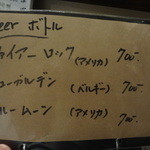 eer ボトル
ァイアーロック (アメリカ) 700-
ューガルデン (ベルギー) 700-
ルームーン (アメリカ) 700-